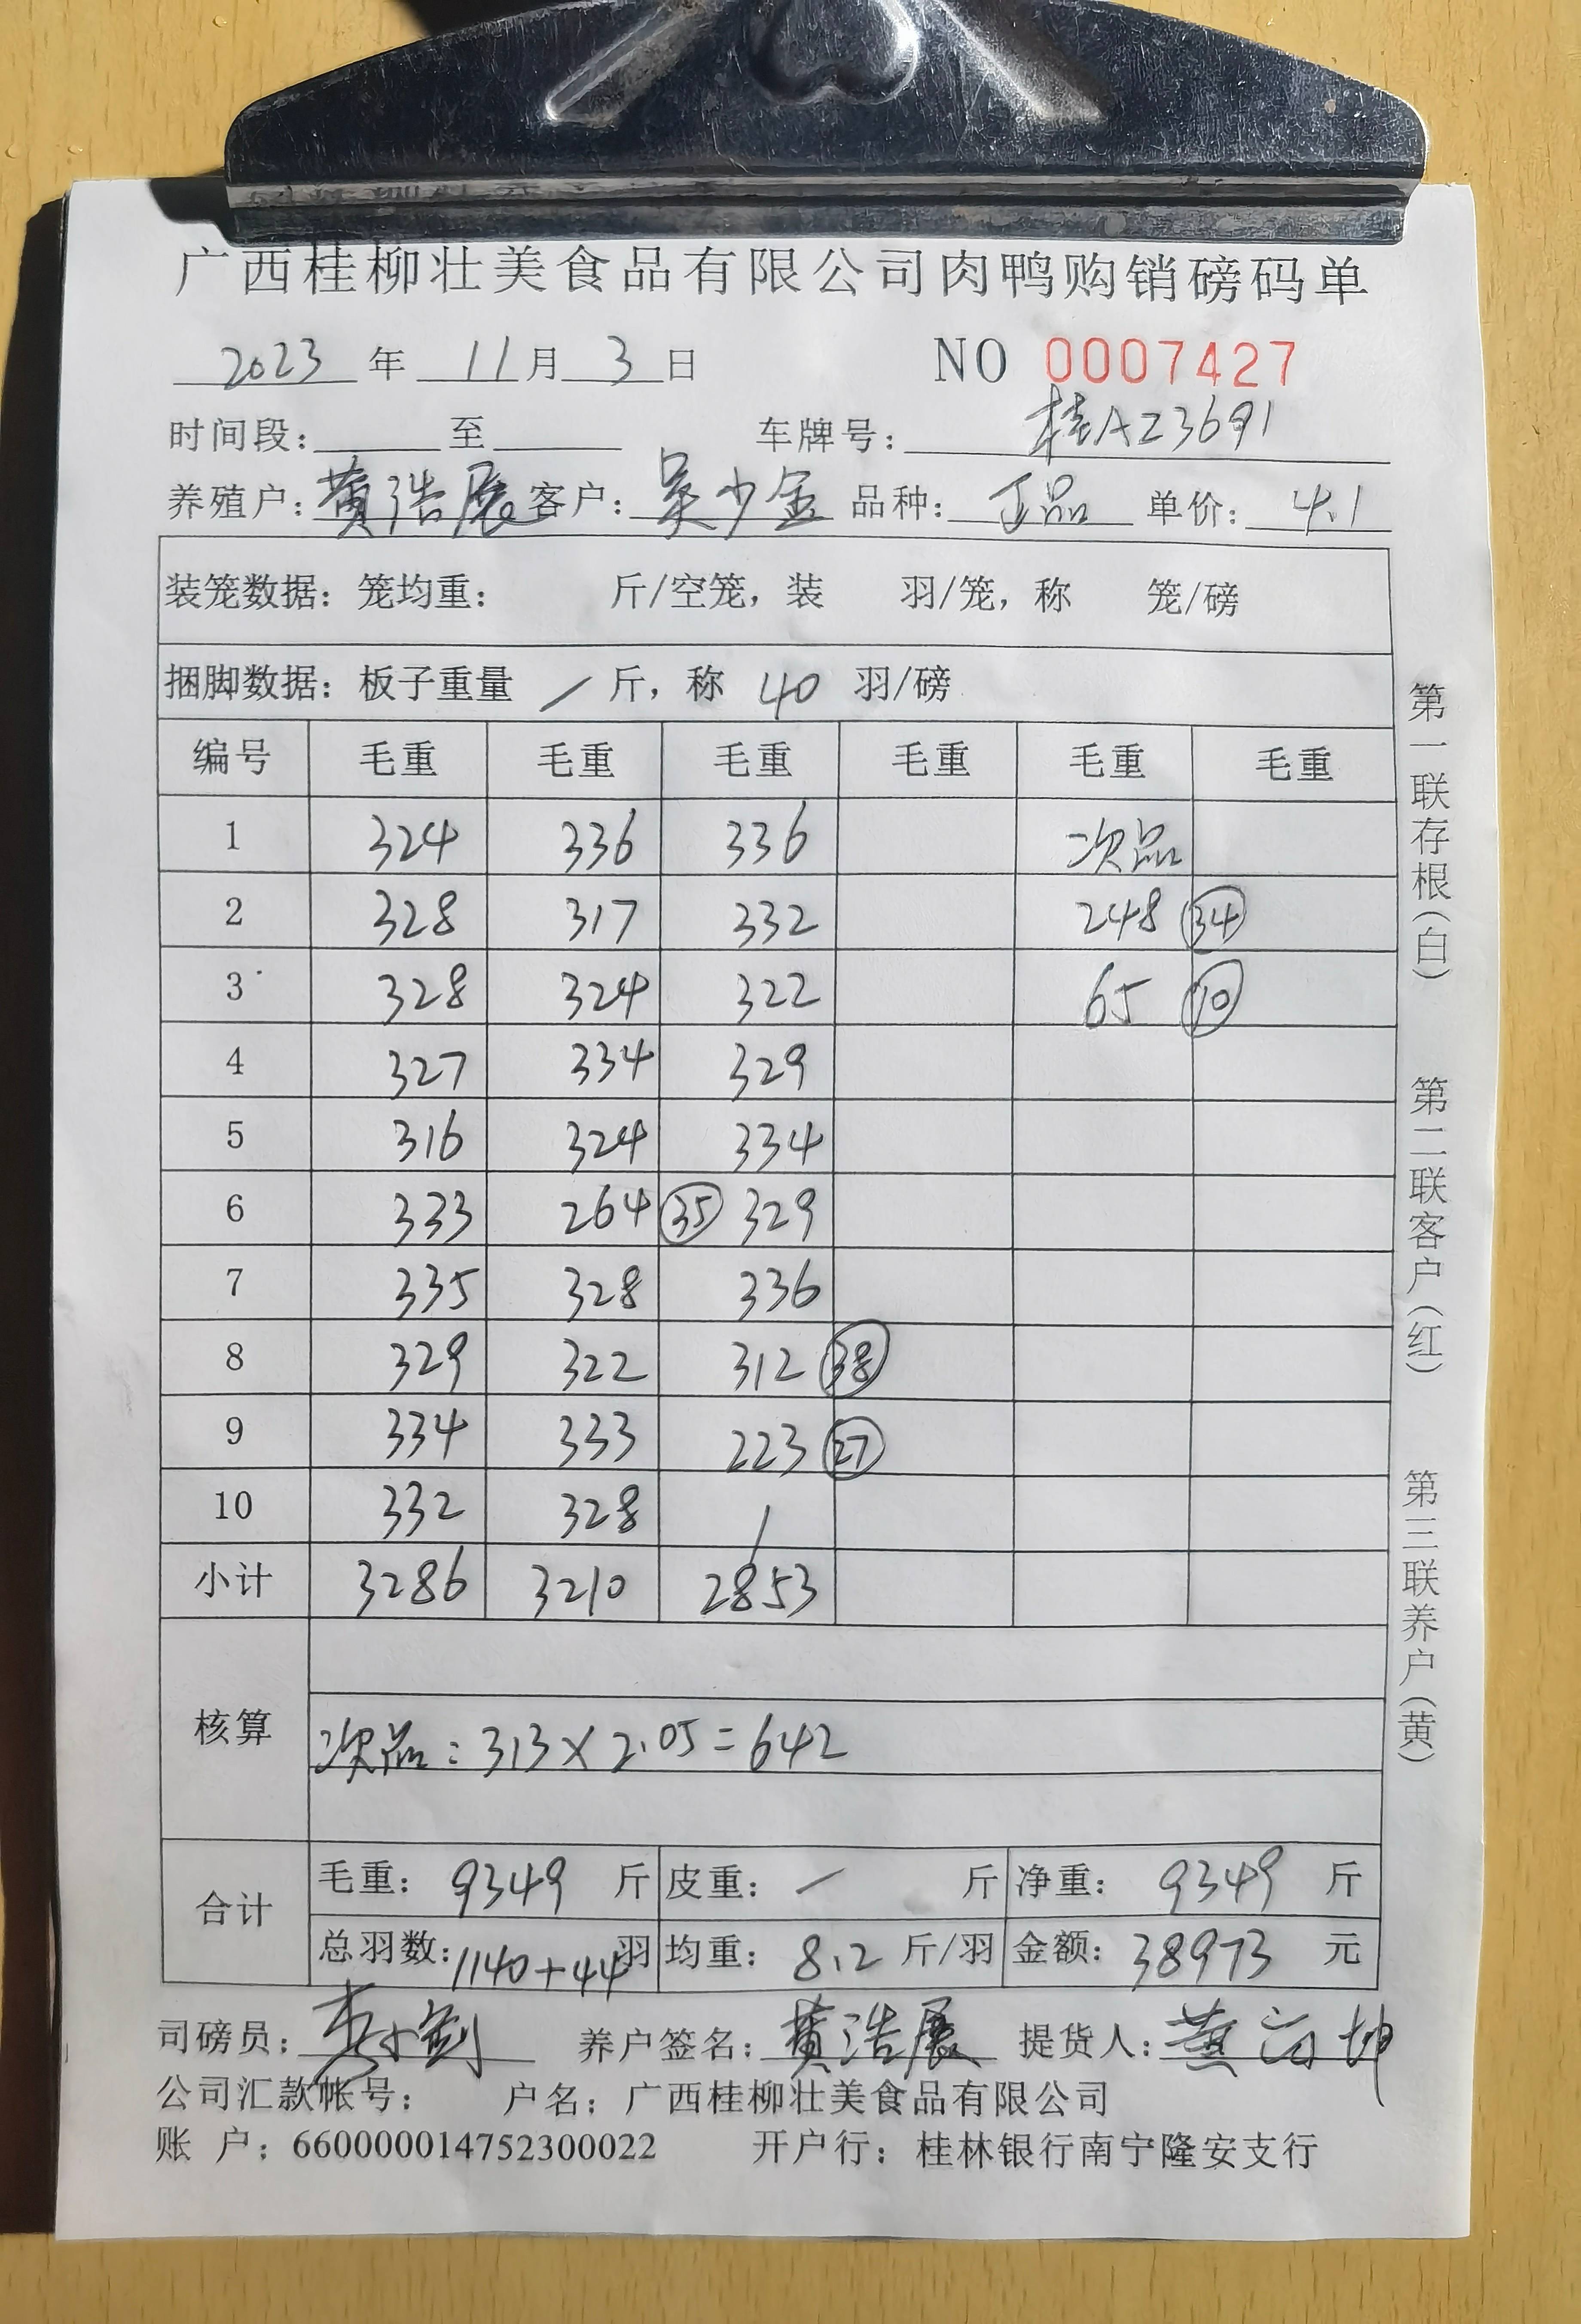 广西桂柳壮美食品有限公司肉鸭购销磅码单
2023 年 11 月 3 日 NO 0007427
时间段: 至 车牌号: 桂AZ3691
养殖户: 黄浩展 客户: 吴少金 品种: 正品 单价: 4.1
装笼数据: 笼均重: 斤/空笼, 装 羽/笼, 称 笼/磅
捆脚数据: 板子重量 / 斤, 称 40 羽/磅
编号 毛重 毛重 毛重 毛重 毛重 毛重
1 324 336 336 次品
2 328 317 332 248 34
3 328 324 322 65 10
4 327 334 329
5 316 324 334
6 333 264 35 329
7 335 328 336
8 329 322 312 38
9 334 333 223 27
10 332 328 /
小计 3286 3210 2853
核算
次品: 313×2.05=642
合计
毛重: 9349 斤 皮重: / 斤 净重: 9349 斤
总羽数: 1140+44 羽 均重: 8.2 斤/羽 金额: 38973 元
司磅员: 养户签名: 黄浩展 提货人: 黄
公司汇款帐号: 户名: 广西桂柳壮美食品有限公司
账 户: 660000014752300022 开户行: 桂林银行南宁隆安支行
第一联存根(白)
第二联客户(红)
第三联养户(黄)